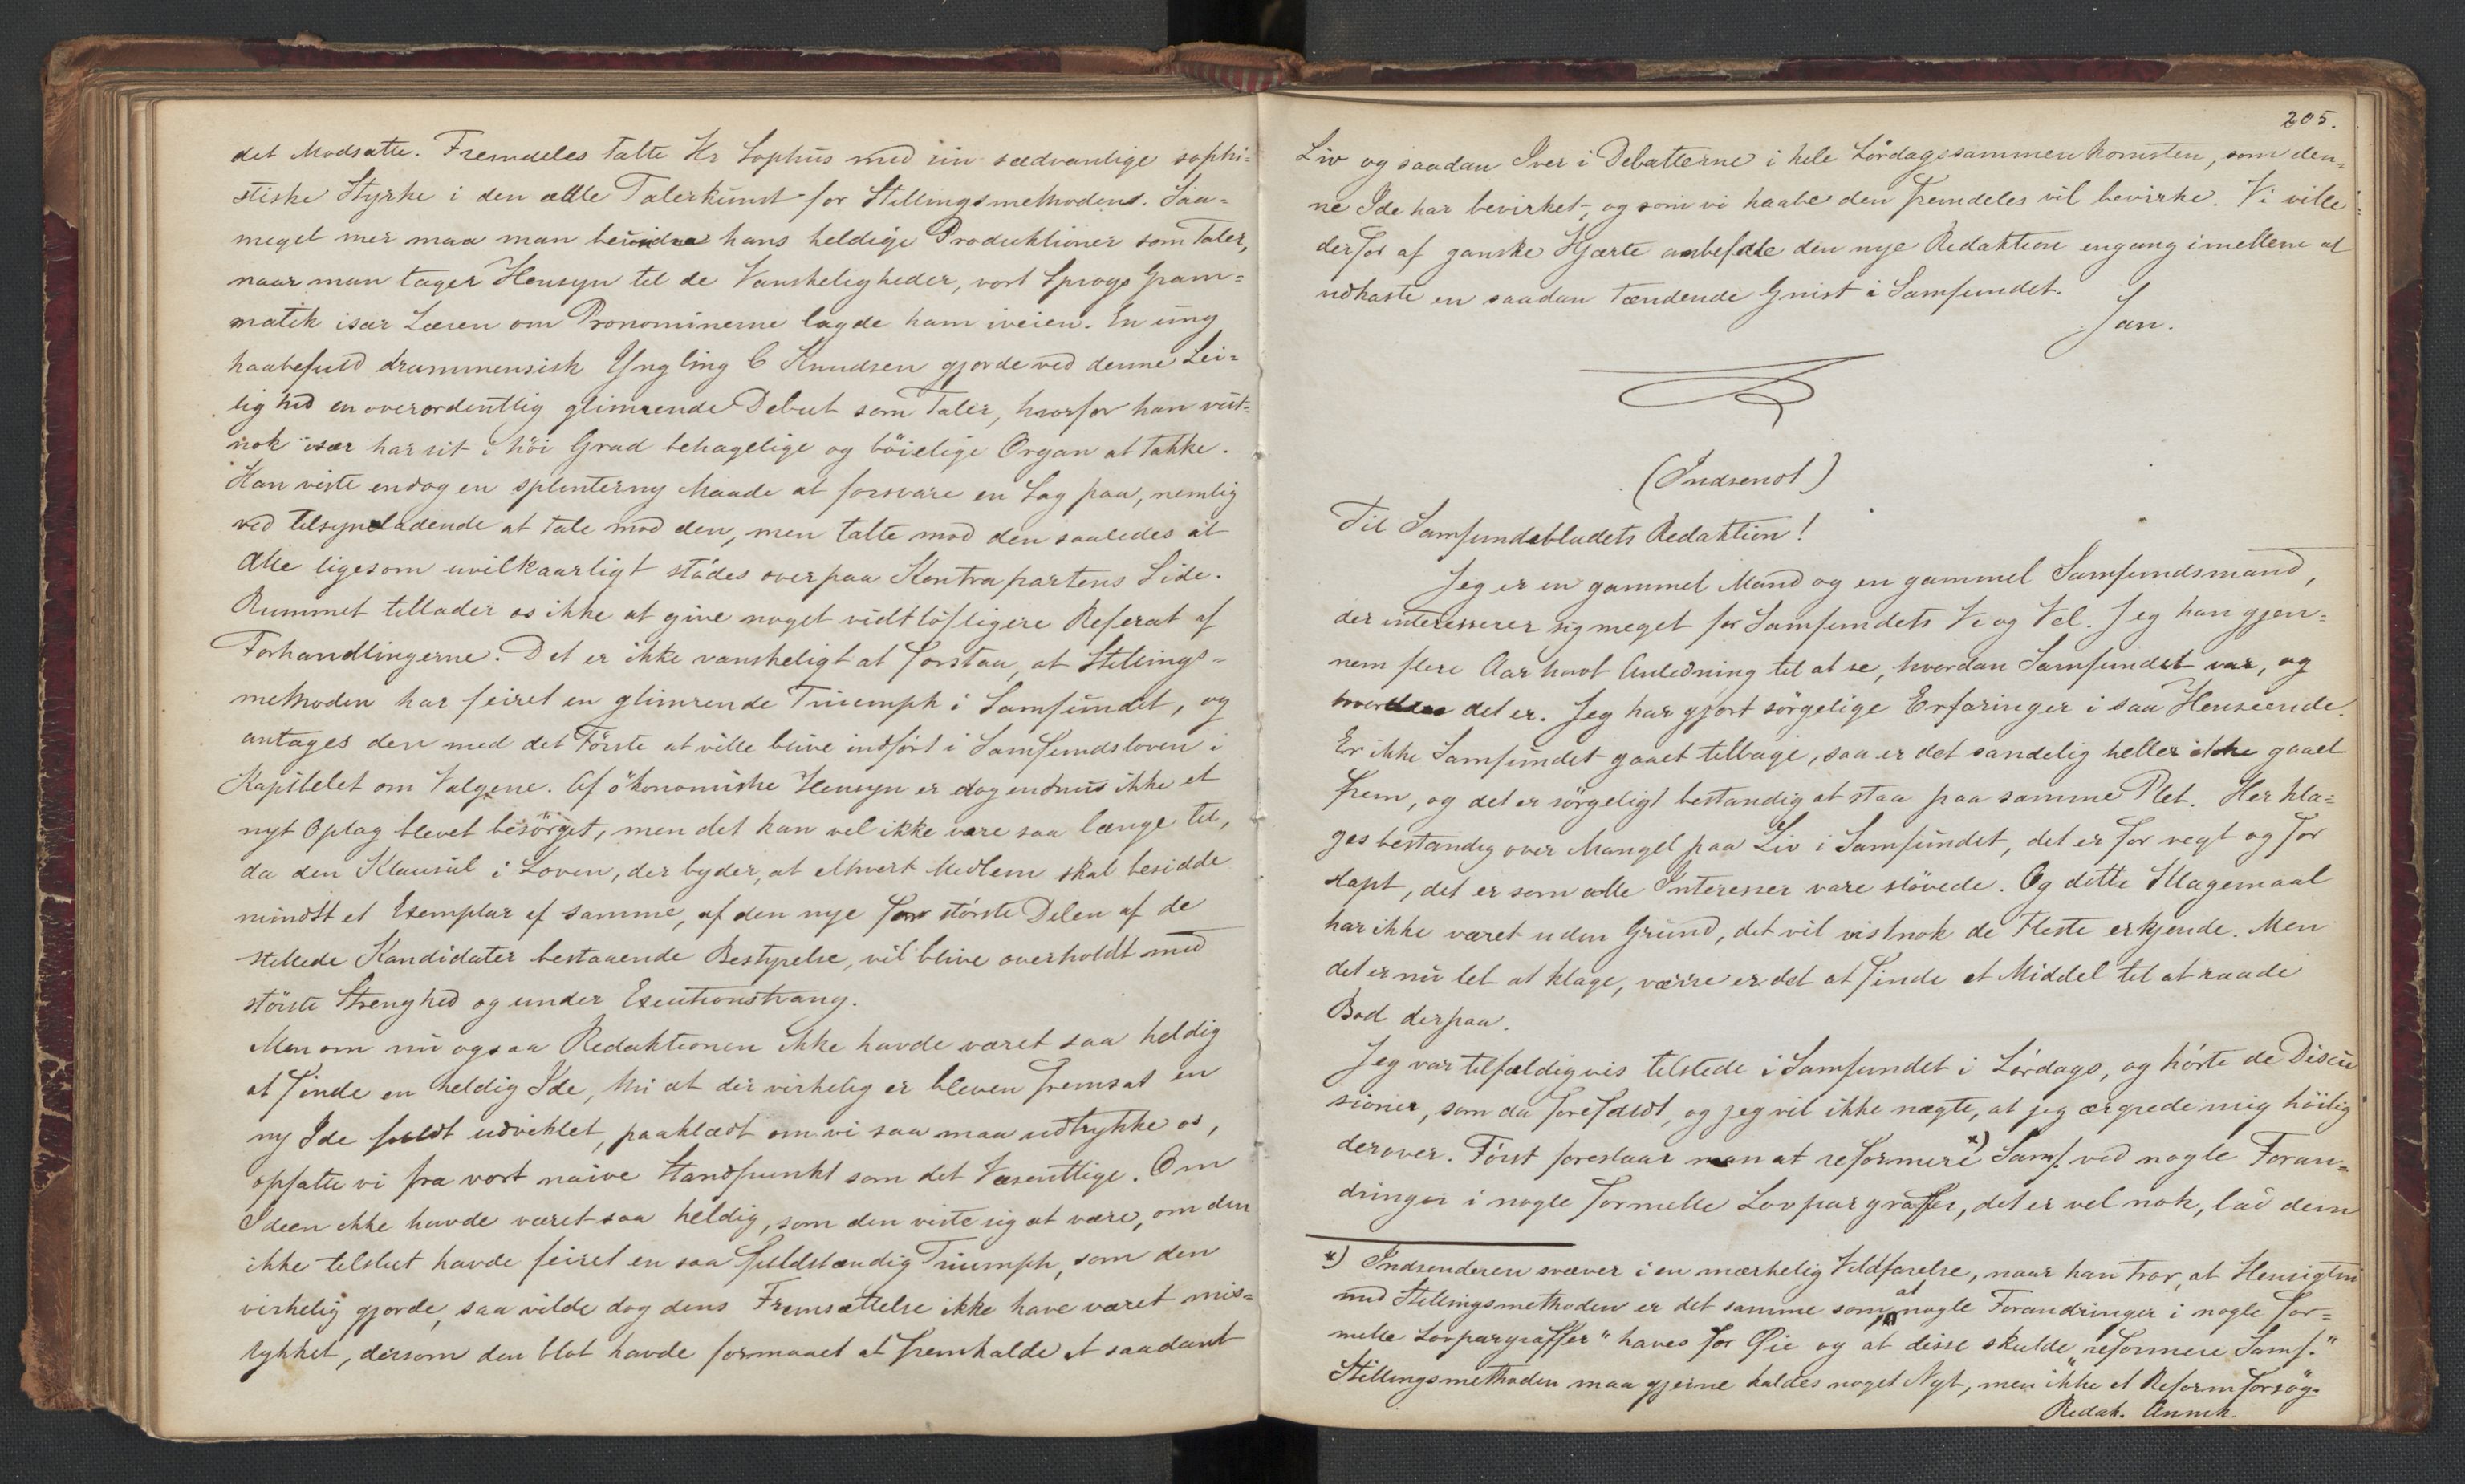 det Modsatte. Fremdeles talte Hr Sophus med sin sædvanlige sophi=
stiske Styrke i den ædle Talerkunst for Stillingsmethoden. Saa=
meget mer maa man beundre hans heldige Produktioner som Taler,
naar man tager Hensyn til de Vanskeligheder, vort Sprogs Gram=
matik især Læren om Pronominerne lagde ham iveien. En ung
haabefuld drammensisk Yngling C Knudsen gjorde ved denne Lei=
lighed en overordentlig glimrende Debut som Taler, hvorfor han vist=
nok især har sit i höi Grad behagelige og böielige Organ at takke.
Han viste endog en splinterny Maade at forsvare en Sag paa, nemlig
ved tilsyneladende at tale mod den, men talte mod den saaledes at
Alle ligesom uvilkaarligt stödes over paa Kontrapartens Side.
Rummet tillader os ikke at give noget vidtlöftigere Referat af
Forhandlingerne. Det er ikke vanskeligt at forstaa, at Stillings=
methoden har feiret en glimrende Triumph i Samfundet, og
antages den med det Förste at ville blive indfört i Samfundsloven i
Kapitelet om Valgene. Af ökonomiske Hensyn er dog endnu ikke et
nyt Oplag blevet besörget, men det kan vel ikke være saa længe til,
da den Klausul i Loven, der byder, at ethvert Medlem skal besidde
mindst et Exemplar af samme, af den nye for störste Delen af de
stillede Kandidater bestaaende Bestyrelse, vil blive overholdt med
störste Strenghed og under Executionstvang.
Men om nu ogsaa Redaktionen ikke havde været saa heldig
at finde en heldig Ide, thi at der virkelig er bleven fremsat en
ny Ide fuldt udviklet, paaklædt om vi saa maa udtrykke os,
opfatte vi fra vort naive Standpunkt som det Væsentlige. Om
Ideen ikke havde været saa heldig, som den viste sig at være, om den
ikke tilslut havde feiret en saa fuldstændig Triumph, som den
virkelig gjorde, saa vilde dog dens Fremsættelse ikke have været mis=
lykket, dersom den blot havde formaaet at fremkalde et saadant
205.
Liv og saadan Iver i Debatterne i hele Lördagssammenkomsten, som den=
ne Ide har bevirket, og som vi haabe den fremdeles vil bevirke. Vi ville
derfor af ganske Hjærte anbefale den nye Redaktion engang imellem at
udkaste en saadan tændende Gnist i Samfundet.
Jan.
(Indsendt)
Til Samfundsbladets Redaktion!
Jeg er en gammel Mand og en gammel Samfundsmand,
der interesserer sig meget for Samfundets Ve og Vel. Jeg har gjen=
nem flere Aar havt Anledning til at se, hvordan Samfundet var, og
hvordan det er. Jeg har gjort sörgelige Erfaringer i saa Henseende.
Er ikke Samfundet gaaet tilbage, saa er det sandelig heller ikke gaaet
frem, og det er sörgeligt bestandig at staa paa samme Plet. Her kla=
ges bestandig over Mangel paa Liv i Samfundet, det er for vegt og for
slapt, det er som alle Interesser vare slövede. Og dette Klagemaal
har ikke været uden Grund, det vil vistnok de Fleste erkjende. Men
det er nu let at klage, værre er det at finde et Middel til at raade
Bod derpaa.
Jeg var tilfældigvis tilstede i Samfundet i Lördags, og hörte de Discu
sioner, som da forefaldt, og jeg vil ikke nægte, at jeg ærgrede mig höilig
derover. Först foreslaar man at reformere x) Samf. ved nogle Foran=
dringer i nogle formelle Lovpargraffer, det er vel nok, lad dem
x) Indsenderen svæver i en mærkelig Vildfarelse, naar han tror, at Hensigten
med Stillingsmethoden er det samme som at "nogle Forandringer i nogle for=
melle Lovpargraffer" haves for Øie og at disse skulde "reformere Samf."
Stillingsmethoden maa gjerne kaldes noget Nyt, men ikke et Reformforsög.
Redak. Anmk.